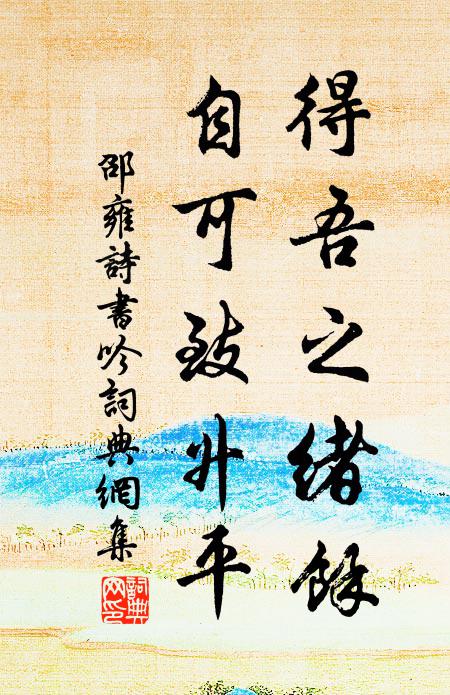 得吾之緒餘
自可致升平
邵雍詩書吟詞典網集
詞典网印